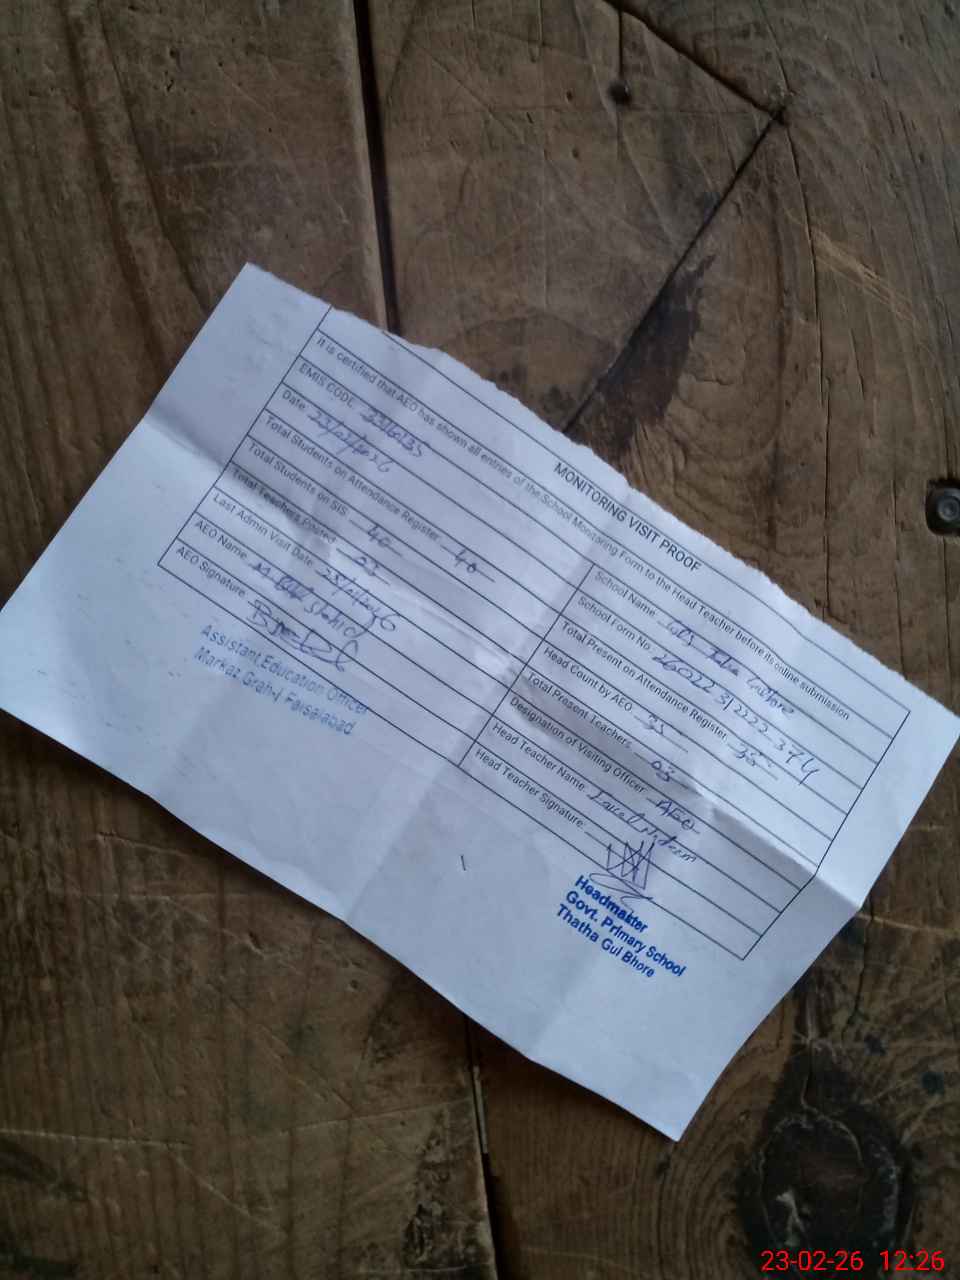 MONITORING VISIT PROOF
It is certified that AEO has shown all entries of the School Monitoring Form to the Head Teacher before its online submission
EMIS CODE
School Name
Date 23/02/2026
School Form No.
Total Students on Attendance Register 40
Total Present on Attendance Register 35
Total Students on SIS 40
Head Count by AEO 35
Total Teachers Posted 03
Total Present Teachers 03
Last Admin Visit Date
Designation of Visiting Officer AEO
AEO Name Shahid
Head Teacher Name:
AEO Signature
Head Teacher Signature:
Assistant Education Officer
Markaz Grah-I Faisalabad
Headmaster
Govt. Primary School
Thatha Gul Bhore
23-02-26 12:26